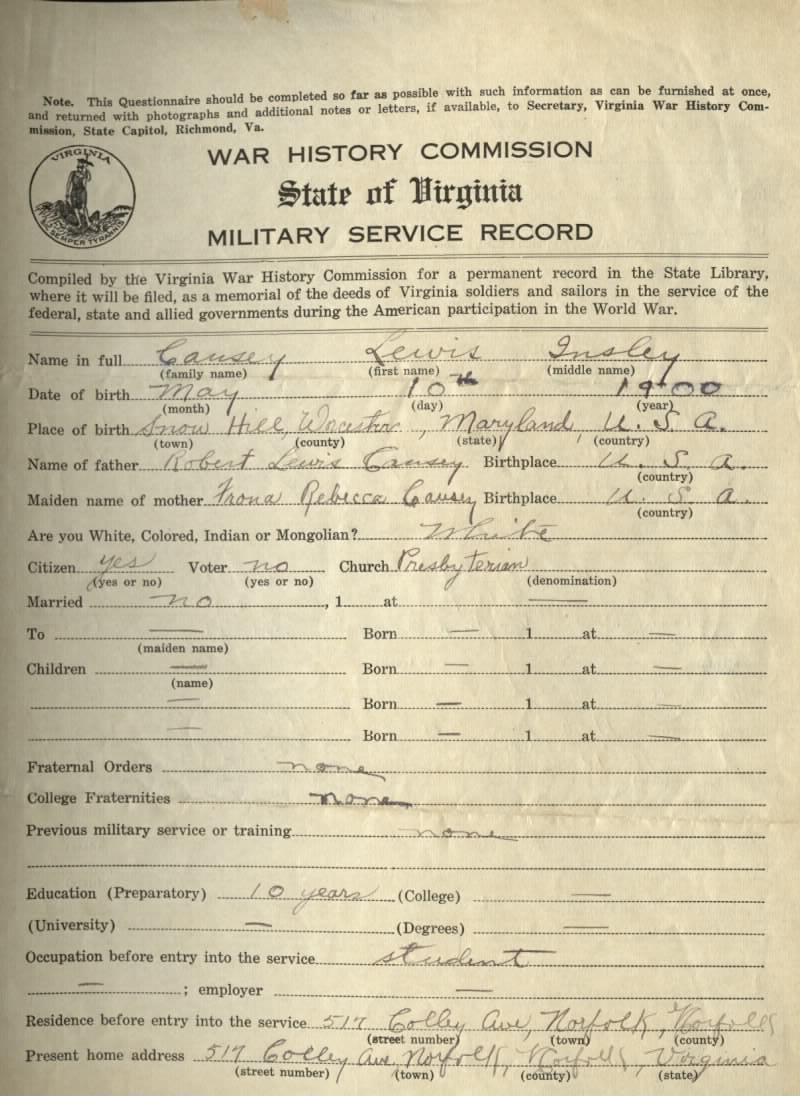 Note. This Questionnaire should be completed so far as possible with such information as can be furnished at once,
and returned with photographs and additional notes or letters, if available, to Secretary, Virginia War History Com-
mission, State Capitol, Richmond, Va.
VIRGINIA
SEMPER TYRANNIS
WAR HISTORY COMMISSION
State of Virginia
MILITARY SERVICE RECORD
Compiled by the Virginia War History Commission for a permanent record in the State Library,
where it will be filed, as a memorial of the deeds of Virginia soldiers and sailors in the service of the
federal, state and allied governments during the American participation in the World War.
Name in full Causey Lewis Insley
(family name) (first name) (middle name)
Date of birth May 10th 1900
(month) (day) (year)
Place of birth Snow Hill, Wocester, Maryland U. S. A.
(town) (county) (state) (country)
Name of father Robert Lewis Causey Birthplace U. S. A.
(country)
Maiden name of mother Rebecca Causey Birthplace U. S. A.
(country)
Are you White, Colored, Indian or Mongolian? White
Citizen yes Voter no Church Presbyterian
(yes or no) (yes or no) (denomination)
Married no, 1 at —
To — Born — 1 at —
(maiden name)
Children — Born — 1 at —
(name)
— Born — 1 at —
— Born — 1 at —
Fraternal Orders none
College Fraternities none
Previous military service or training none
Education (Preparatory) 10 years (College) —
(University) — (Degrees) —
Occupation before entry into the service student
— ; employer —
Residence before entry into the service 517 Colley Ave, Norfolk, Norfolk
(street number) (town) (county)
Present home address 517 Colley Ave, Norfolk, Norfolk, Virginia
(street number) (town) (county) (state)